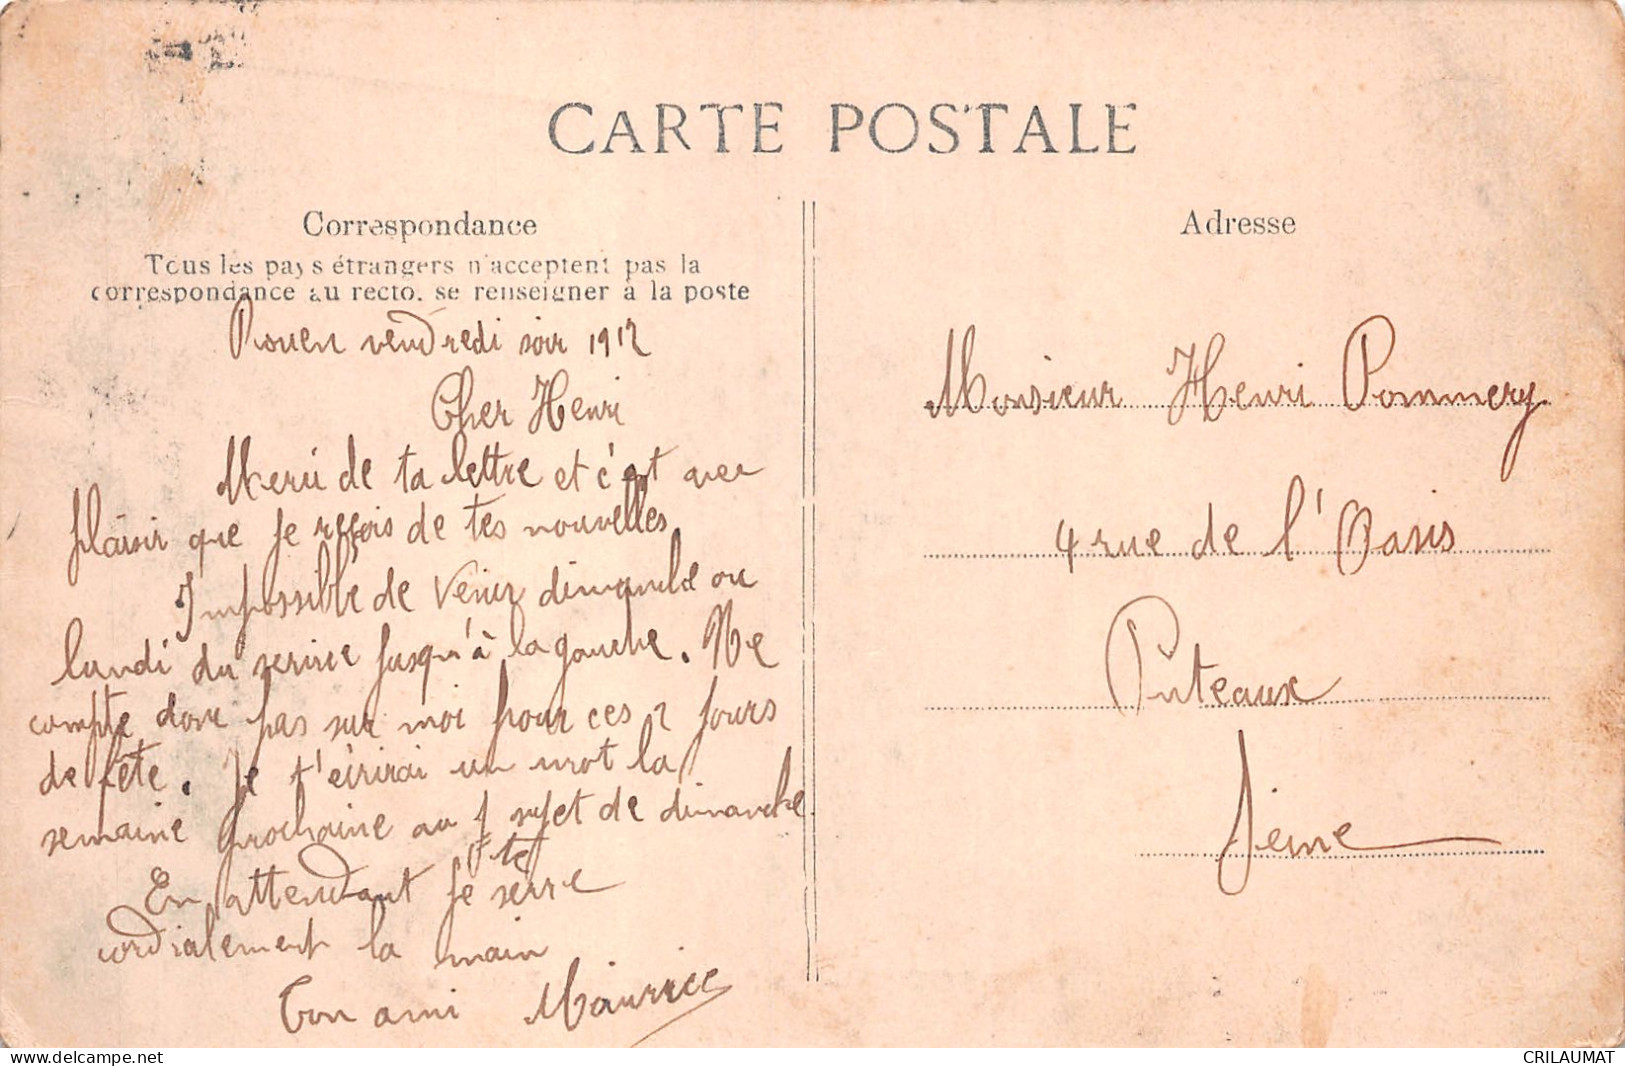 CARTE POSTALE
Correspondance
Tous les pays étrangers n'acceptent pas la
correspondance au recto. se renseigner à la poste
Rouen vendredi soir 1912
Cher Henri
Merci de ta lettre et c'est avec
plaisir que je reçois de tes nouvelles.
Impossible de venir dimanche ou
lundi du service jusqu'à la gauche. Ne
compte donc pas sur moi pour ces 2 jours
de fête. Je t'écrirai un mot la
semaine prochaine au sujet de dimanche.
En attendant je te serre
cordialement la main
Ton ami Maurice
Adresse
Monsieur Henri Pommery
4 rue de l'Oasis
Puteaux
Seine
CRILAUMAT